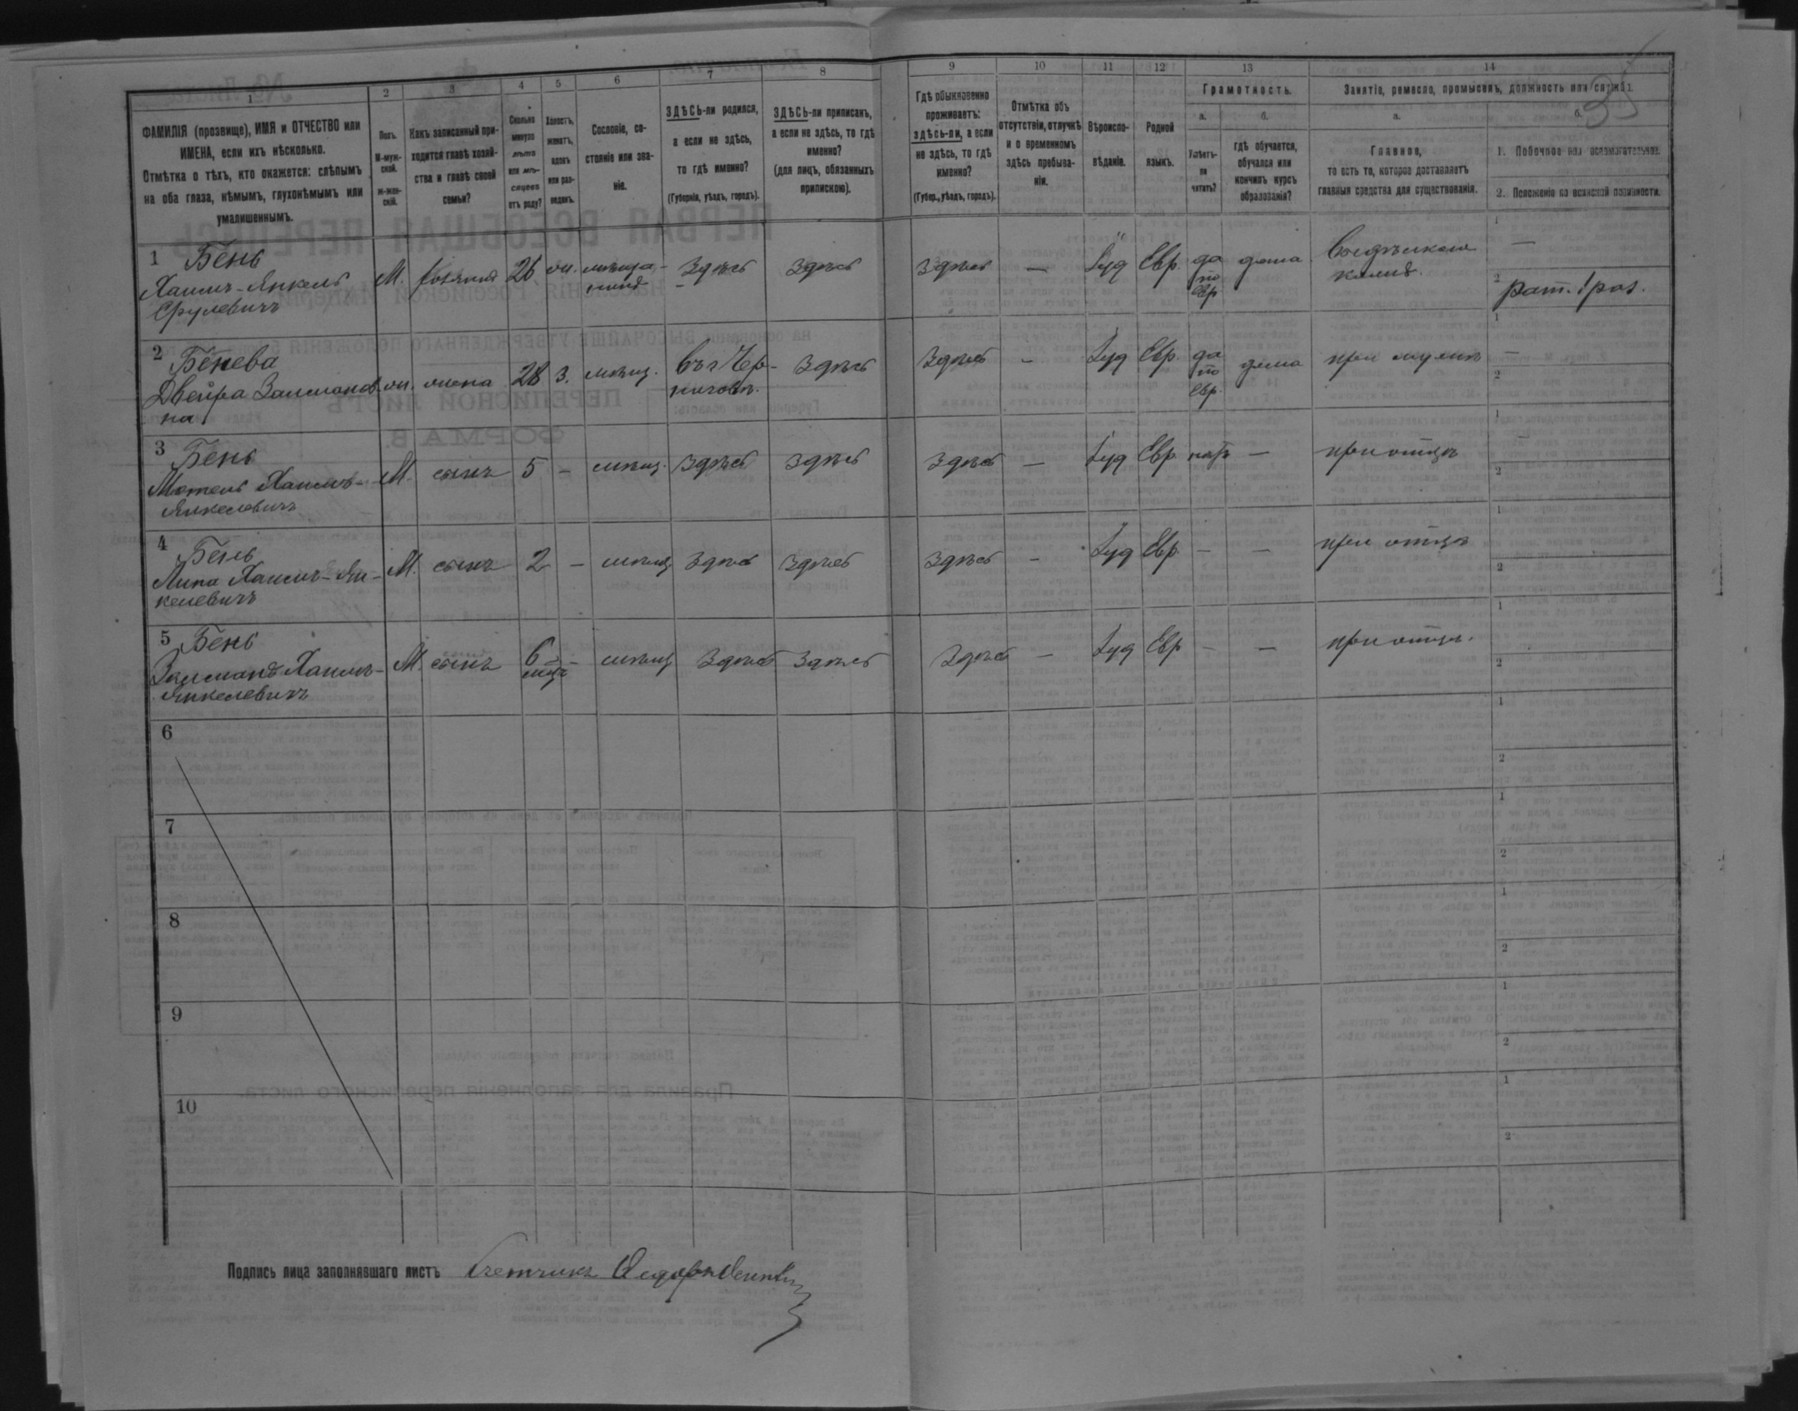 1 2 3 4 5 6 7 8 9 10 11 12 13 14
ФАМИЛІЯ (прозвище), ИМЯ и ОТЧЕСТВО или
ИМЕНА, если ихъ нѣсколько.
Отмѣтка о тѣхъ, кто окажется: слѣпымъ
на оба глаза, нѣмымъ, глухонѣмымъ или
умалишеннымъ.
Полъ.
М-муж-
ской.
ж-жен-
скій.
Какъ записанный при-
ходится главѣ хозяй-
ства и главѣ своей
семьи?
Сколько
минуло
лѣтъ
или мѣ-
сяцевъ
отъ роду?
Холостъ,
женатъ,
вдовъ
или раз-
веденъ.
Сословіе, со-
стояніе или зва-
ніе.
ЗДѢСЬ-ли родился,
а если не здѣсь,
то гдѣ именно?
(Губернія, уѣздъ, городъ).
ЗДѢСЬ-ли приписанъ,
а если не здѣсь, то гдѣ
именно?
(для лицъ, обязанныхъ
припискою).
Гдѣ обыкновенно
проживаетъ:
здѣсь-ли, а если
не здѣсь, то гдѣ
именно?
(Губер., уѣздъ, городъ).
Отмѣтка объ
отсутствіи, отлучкѣ
и о временномъ
здѣсь пребыва-
ніи.
Вѣроиспо-
вѣданіе.
Родной
языкъ.
Грамотность.
а.
Умѣетъ-
ли
читать?
б.
гдѣ обучается,
обучался или
кончилъ курсъ
образованія?
Занятіе, ремесло, промыселъ, должность или служба.
а.
Главное,
то есть то, которое доставляетъ
главныя средства для существованія.
б.
1. Побочное или вспомогательное.
2. Положеніе по воинской повинности.
1 Бень
Хаимъ-Янкель
Срулевичъ
М. хозяинъ 26 жн. мѣща-
нинъ
здѣсь здѣсь здѣсь — Іуд Евр. да
по
Евр
дома
—
рат. 1 раз.
2 Бенева
Двейра Залманов
на
ж. жена 28 з. мѣщ. въ г Чер-
ниговѣ.
здѣсь здѣсь — Іуд Евр. да
по
Евр.
дома при мужѣ —
3 Бень
Мотель Хаимъ-
Янкелевичъ
М. сынъ 5 — мѣщ. здѣсь здѣсь здѣсь — Іуд Евр — при отцѣ —
4 Бень
Липа Хаимъ-Ян-
келевичъ
М. сынъ 2 — мѣщ здѣсь здѣсь здѣсь — Іуд Евр — — при отцѣ
5 Бень
Залманъ Хаимъ-
Янкелевичъ
М. сынъ 6
мѣц
— мѣщ здѣсь здѣсь здѣсь — Іуд Евр — — при отцѣ.
6
7
8
9
10
Подпись лица заполнявшаго листъ Счетчикъ